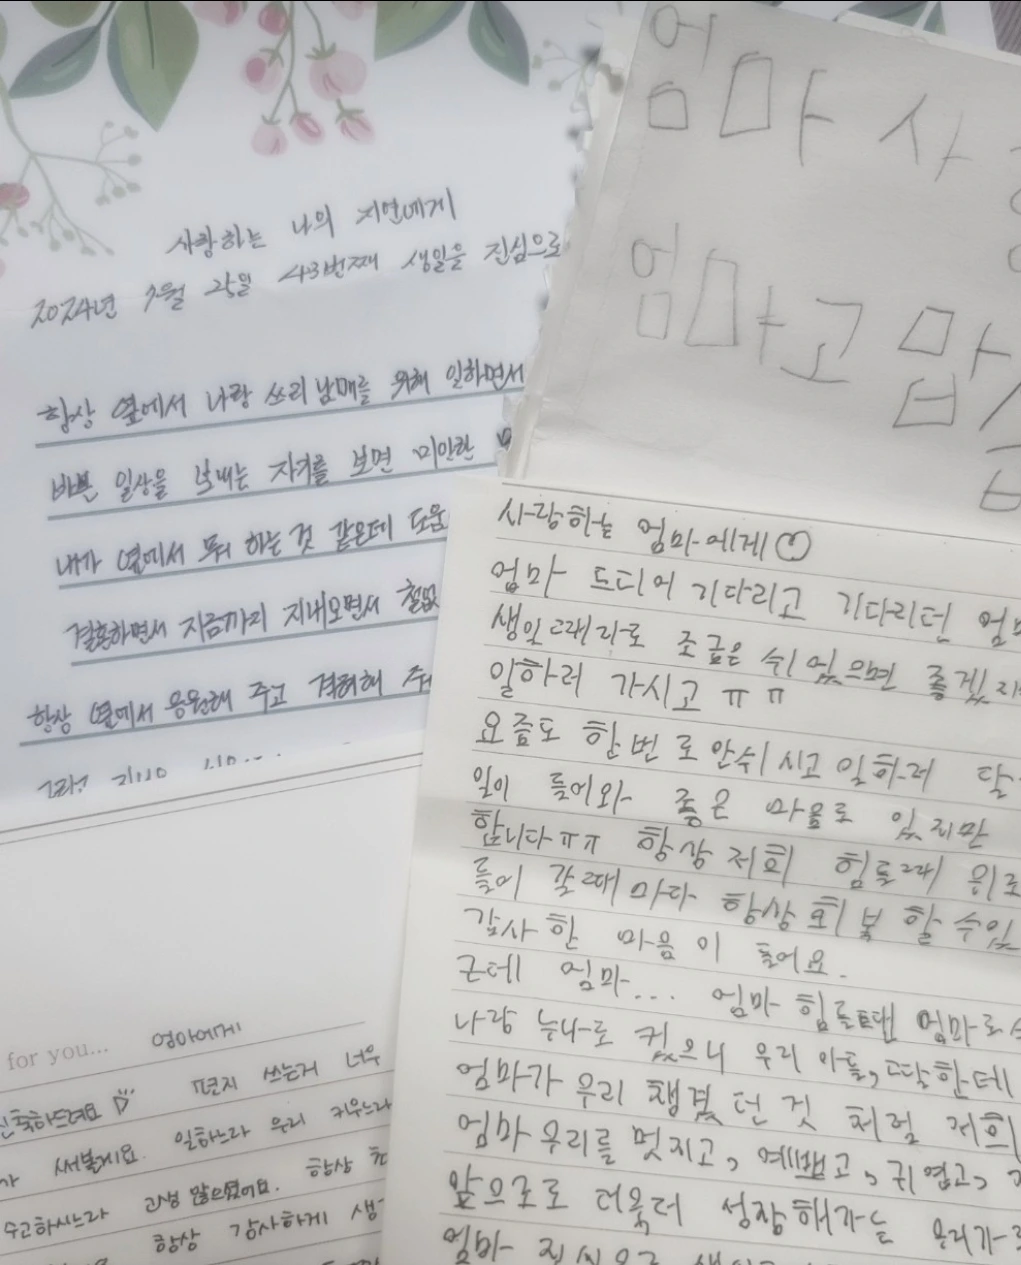 사랑하는 나의 지연에게
2024년 7월 25일 43번째 생일을 진심으로
항상 옆에서 나랑 쓰리남매를 위해 일하면서
바쁜 일상을 보내는 자기를 보면 미안한
내가 옆에서 뭐 하는 것 같은데 도움
결혼하면서 지금까지 지내오면서 철없
항상 옆에서 응원해 주고 격려해 주
엄마 사
엄마 고맙
사랑하는 엄마에게
엄마 드디어 기다리고 기다리던 엄마
생일 그래피로 조금은 쉬었으면 좋겠지
일하러 가시고 ㅠㅠ
요즘도 한번로 안쉬시고 일하러 달
일이 들어와 좋은 마음로 있지만
합니다ㅠㅠ 항상 저희 힘들때 위로
들이 갈때마다 항상 회복 할 수있
감사 한 마음 이 들어요.
근데 엄마... 엄마 힘들땐 엄마로
나랑 누나로 컸으니 우리 아들, 딸한테
엄마가 우리 챙겼던 것 처럼 저희
엄마 우리를 멋지고, 예쁘고, 귀엽고,
앞으로로 더욱더 성장해가는 우리가
엄마 진심으로
for you... 엄마에게
축하드려요 편지 쓰는거 너무
써볼게요. 일하느라 우리 키우느라
수고하시느라 고생 많으셨어요. 항상
항상 감사하게 생